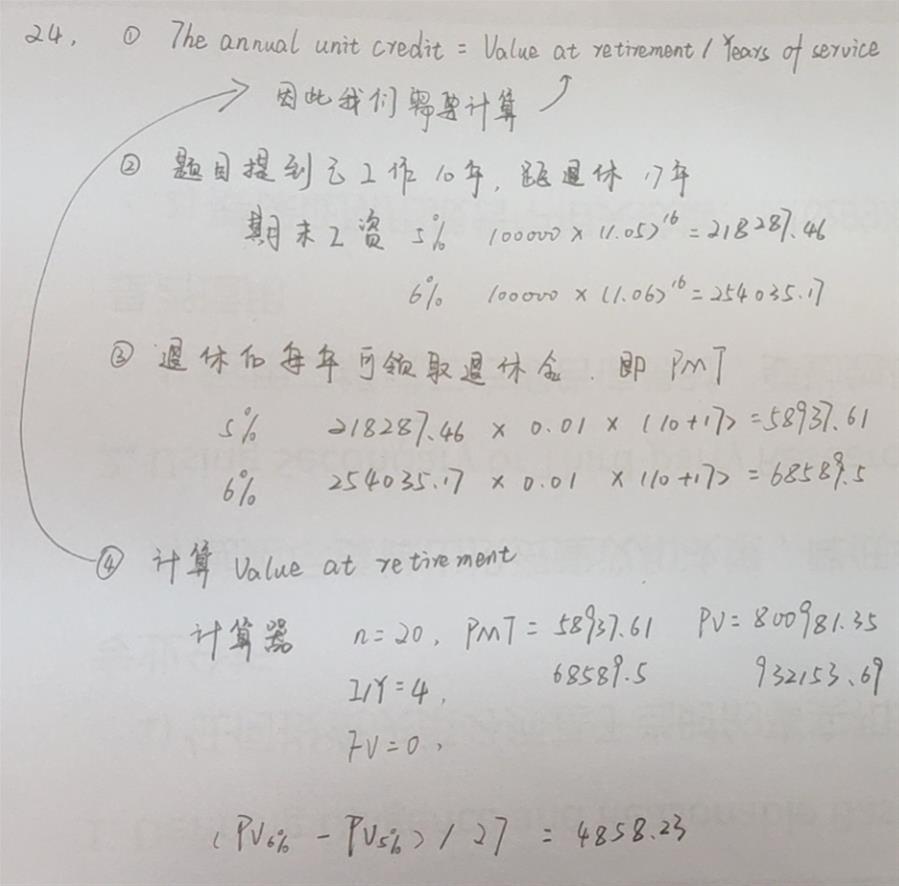 24. ① The annual unit credit = Value at retirement / Years of service
因此我们需要计算
② 题目提到已工作10年, 距退休17年
期末工资 5% 100000 × (1.05)^16 = 218287.46
6% 100000 × (1.06)^16 = 254035.17
③ 退休后每年可领取退休金. 即 PMT
5% 218287.46 × 0.01 × (10+17) = 58937.61
6% 254035.17 × 0.01 × (10+17) = 68589.5
④ 计算 Value at retirement
计算器 n=20, PMT = 58937.61 PV = 800981.35
68589.5 932153.69
I/Y=4,
FV=0,
(PV6% - PV5%) / 27 = 4858.23